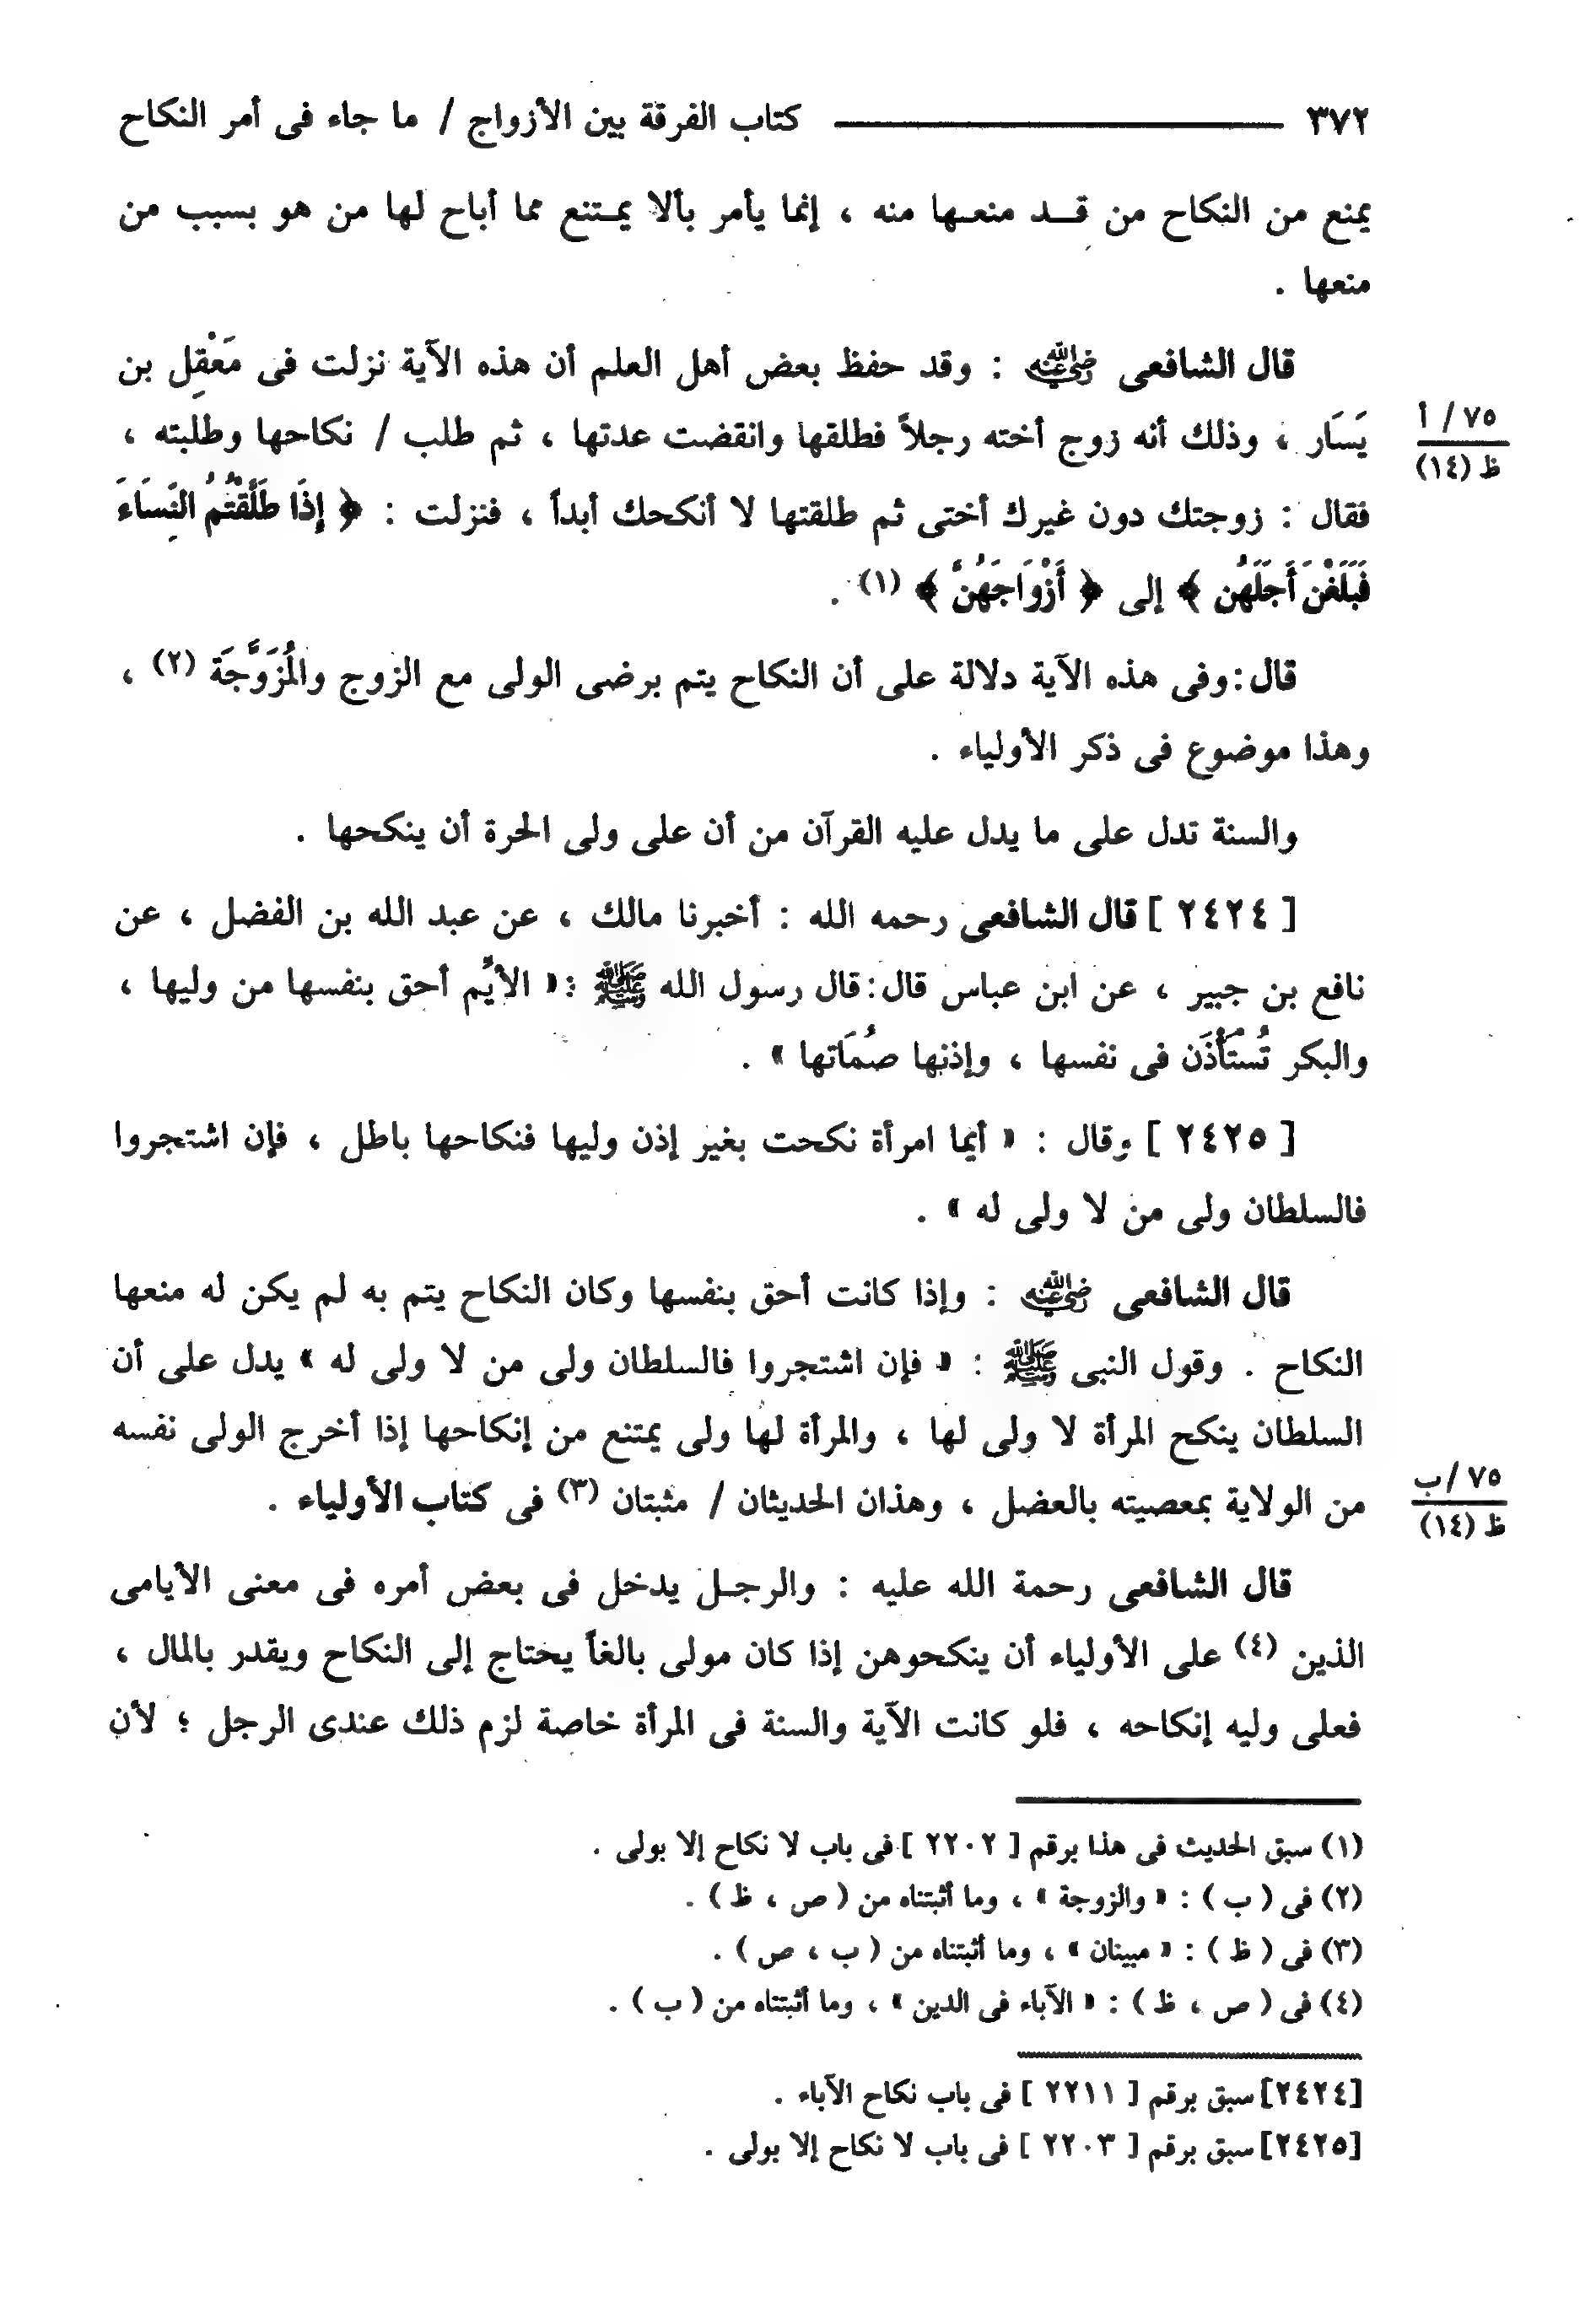 ٣٧٢ ـــــ كتاب الفرقة بين الأزواج / ما جاء فى أمر النكاح
يمنع من النكاح من قـد منعـها منه ، إنما يأمر بألا يمـتنع مما أباح لها من هو بسبب من
منعها .
قال الشافعى رضي الله عنه : وقد حفظ بعض أهل العلم أن هذه الآية نزلت فى مَعْقِل بن
يَسَار ، وذلك أنه زوج أخته رجلاً فطلقها وانقضت عدتها ، ثم طلب / نكاحها وطلبته ،
٧٥ / أ
ظ (١٤)
فقال : زوجتك دون غيرك أختى ثم طلقتها لا أنكحك أبداً ، فنزلت : ﴿ إِذَا طَلَّقْتُمُ النِّسَاءَ
فَبَلَغْنَ أَجَلَهُنَّ ﴾ إلى ﴿ أَزْوَاجَهُنَّ ﴾ (١) .
قال:وفى هذه الآية دلالة على أن النكاح يتم برضى الولى مع الزوج والمُزَوَّجَة (٢) ،
وهذا موضوع فى ذكر الأولياء .
والسنة تدل على ما يدل عليه القرآن من أن على ولى الحرة أن ينكحها .
[ ٢٤٢٤ ] قال الشافعى رحمه الله : أخبرنا مالك ، عن عبد الله بن الفضل ، عن
نافع بن جبير ، عن ابن عباس قال:قال رسول الله ﷺ :« الأيِّم أحق بنفسها من وليها ،
والبكر تُسْتَأْذَن فى نفسها ، وإذنها صُمَاتها » .
[ ٢٤٢٥ ] وقال : « أيما امرأة نكحت بغير إذن وليها فنكاحها باطل ، فإن اشتجروا
فالسلطان ولى من لا ولى له » .
قال الشافعى رضي الله عنه : وإذا كانت أحق بنفسها وكان النكاح يتم به لم يكن له منعها
النكاح . وقول النبى ﷺ : « فإن اشتجروا فالسلطان ولى من لا ولى له » يدل على أن
السلطان ينكح المرأة لا ولى لها ، والمرأة لها ولى يمتنع من إنكاحها إذا أخرج الولى نفسه
من الولاية بمعصيته بالعضل ، وهذان الحديثان / مثبتان (٣) فى كتاب الأولياء .
٧٥ /ب
ظ (١٤)
قال الشافعى رحمة الله عليه : والرجـل يدخل فى بعض أمره فى معنى الأيامى
الذين (٤) على الأولياء أن ينكحوهن إذا كان مولى بالغاً يحتاج إلى النكاح ويقدر بالمال ،
فعلى وليه إنكاحه ، فلو كانت الآية والسنة فى المرأة خاصة لزم ذلك عندى الرجل ؛ لأن
(١) سبق الحديث فى هذا برقم [ ٢٢٠٢ ] فى باب لا نكاح إلا بولى .
(٢) فى ( ب ) : « والزوجة » ، وما أثبتناه من ( ص ، ظ ) .
(٣) فى ( ظ ) : « مبينان » ، وما أثبتناه من ( ب ، ص ) .
(٤) فى ( ص ، ظ ) : « الآباء فى الدين » ، وما أثبتناه من ( ب ) .
[٢٤٢٤] سبق برقم [ ٢٢١١ ] فى باب نكاح الآباء .
[٢٤٢٥] سبق برقم [ ٢٢٠٣ ] فى باب لا نكاح إلا بولى .